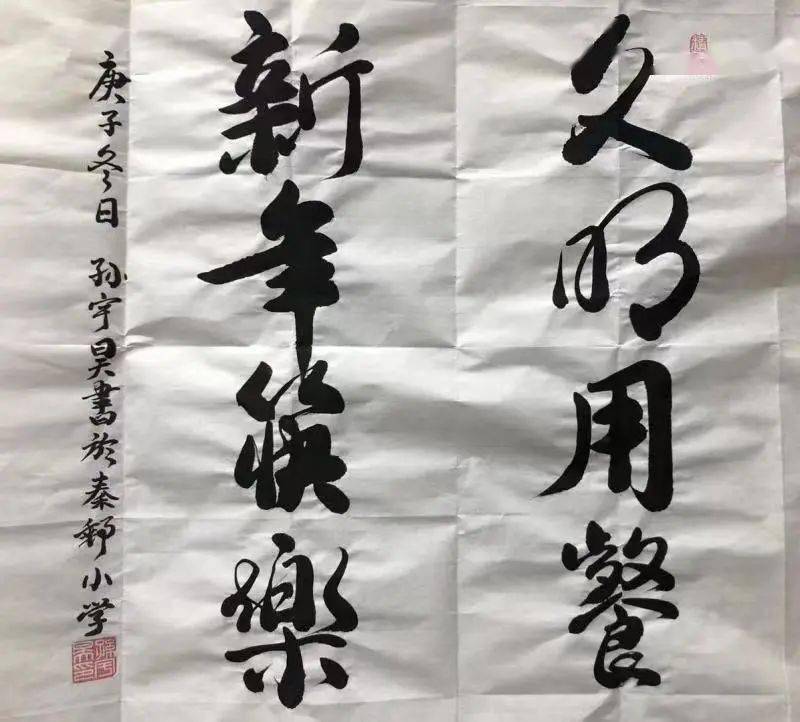 文明用餐
新年筷樂
庚子冬日 孙宇昊書於秦邮小学